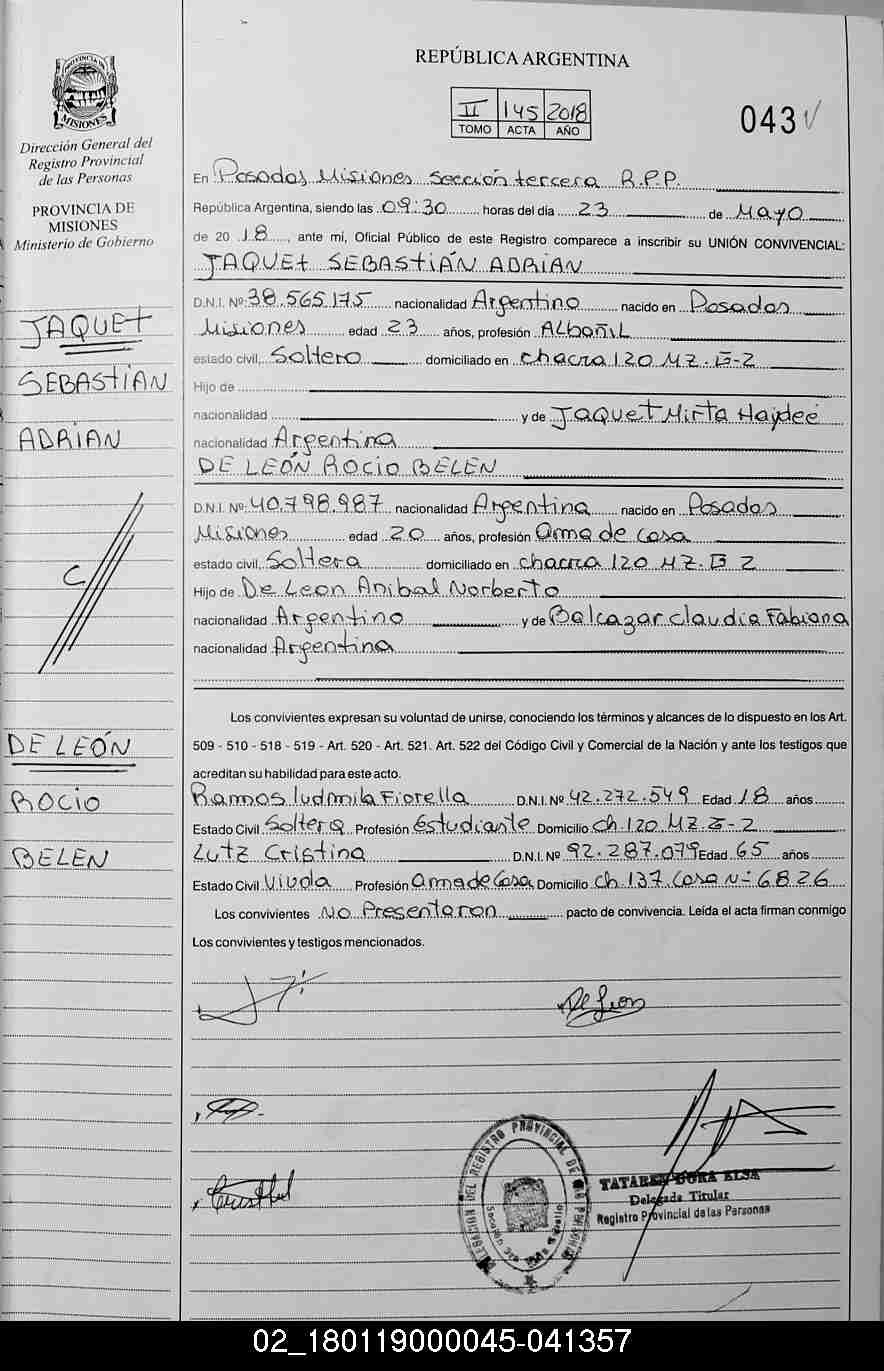 REPÚBLICA ARGENTINA
II 145 2018
TOMO ACTA AÑO
043
PROVINCIA DE
MISIONES
Dirección General del
Registro Provincial
de las Personas
PROVINCIA DE
MISIONES
Ministerio de Gobierno
JAQUET
SEBASTIAN
ADRIAN
C
DE LEÓN
ROCIO
BELEN
En Posadas Misiones Sección tercera R.P.P.
República Argentina, siendo las 09:30 horas del día 23 de Mayo
de 20 18, ante mí, Oficial Público de este Registro comparece a inscribir su UNIÓN CONVIVENCIAL:
JAQUET SEBASTIÁN ADRIAN
D.N.I. Nº: 38.565.175 nacionalidad Argentino nacido en Posadas
Misiones edad 23 años, profesión ALbañiL
estado civil, Soltero domiciliado en chacra 120 MZ. E-2
Hijo de
nacionalidad y de JAQUET Mirta Haydeé
nacionalidad Argentina
DE LEÓN ROCIO BELEN
D.N.I. Nº: 40.798.987 nacionalidad Argentina nacido en Posadas
Misiones edad 20 años, profesión ama de casa
estado civil, Soltera domiciliado en chacra 120 MZ. E 2
Hijo de De Leon Anibal Norberto
nacionalidad Argentino y de Balcazar claudia Fabiana
nacionalidad Argentina
Los convivientes expresan su voluntad de unirse, conociendo los términos y alcances de lo dispuesto en los Art.
509 - 510 - 518 - 519 - Art. 520 - Art. 521. Art. 522 del Código Civil y Comercial de la Nación y ante los testigos que
acreditan su habilidad para este acto.
Ramos ludmila Fiorella D.N.I. Nº 42.272.549 Edad 18 años
Estado Civil Soltera Profesión estudiante Domicilio ch 120 MZ E-2
Lutz Cristina D.N.I. Nº 92.287.079 Edad 65 años
Estado Civil Viuda Profesión Ama de Casa Domicilio ch 137. Casa Nº 6826
Los convivientes No Presentaron pacto de convivencia. Leída el acta firman conmigo
Los convivientes y testigos mencionados.
De Leon
DELEGACION DEL REGISTRO PROVINCIAL DE LAS PERSONAS
TATAREN DORA ELSA
Delegada Titular
Registro Provincial de las Personas
02_180119000045-041357